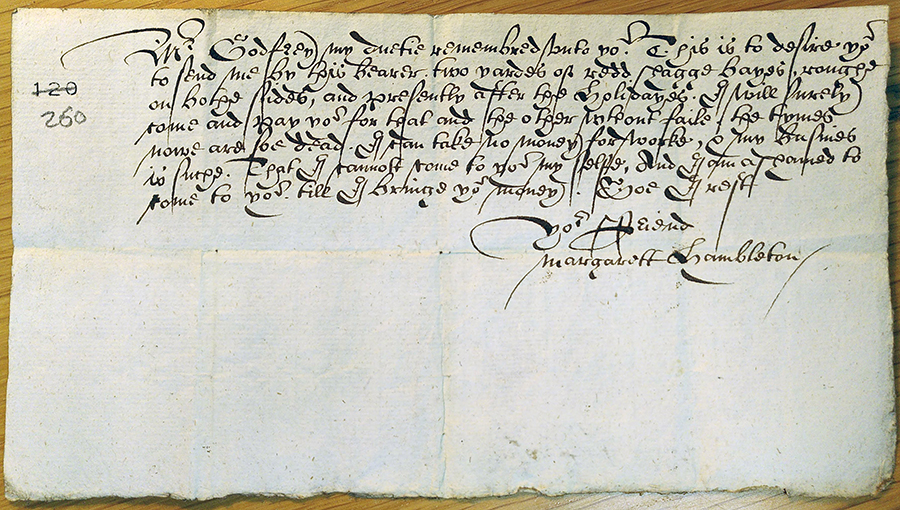 Mr Godfrey my duetie remembred vnto yor. This is to desire yor
to send me by this bearer. two yardes of redd shagge bayes, roughe
on bothe sides, and presently after the Holidayes. I will surely
come and pay yor for that and the other wthout faile, the tymes
nowe are soe dead. I can take no money for worke, & my Busines
is suche. That I cannott come to yor my selffe, And I am ashamed to
come to yor till I bringe yor money. Soe I rest
yor ffriend
Margarett Hambleton
120
260